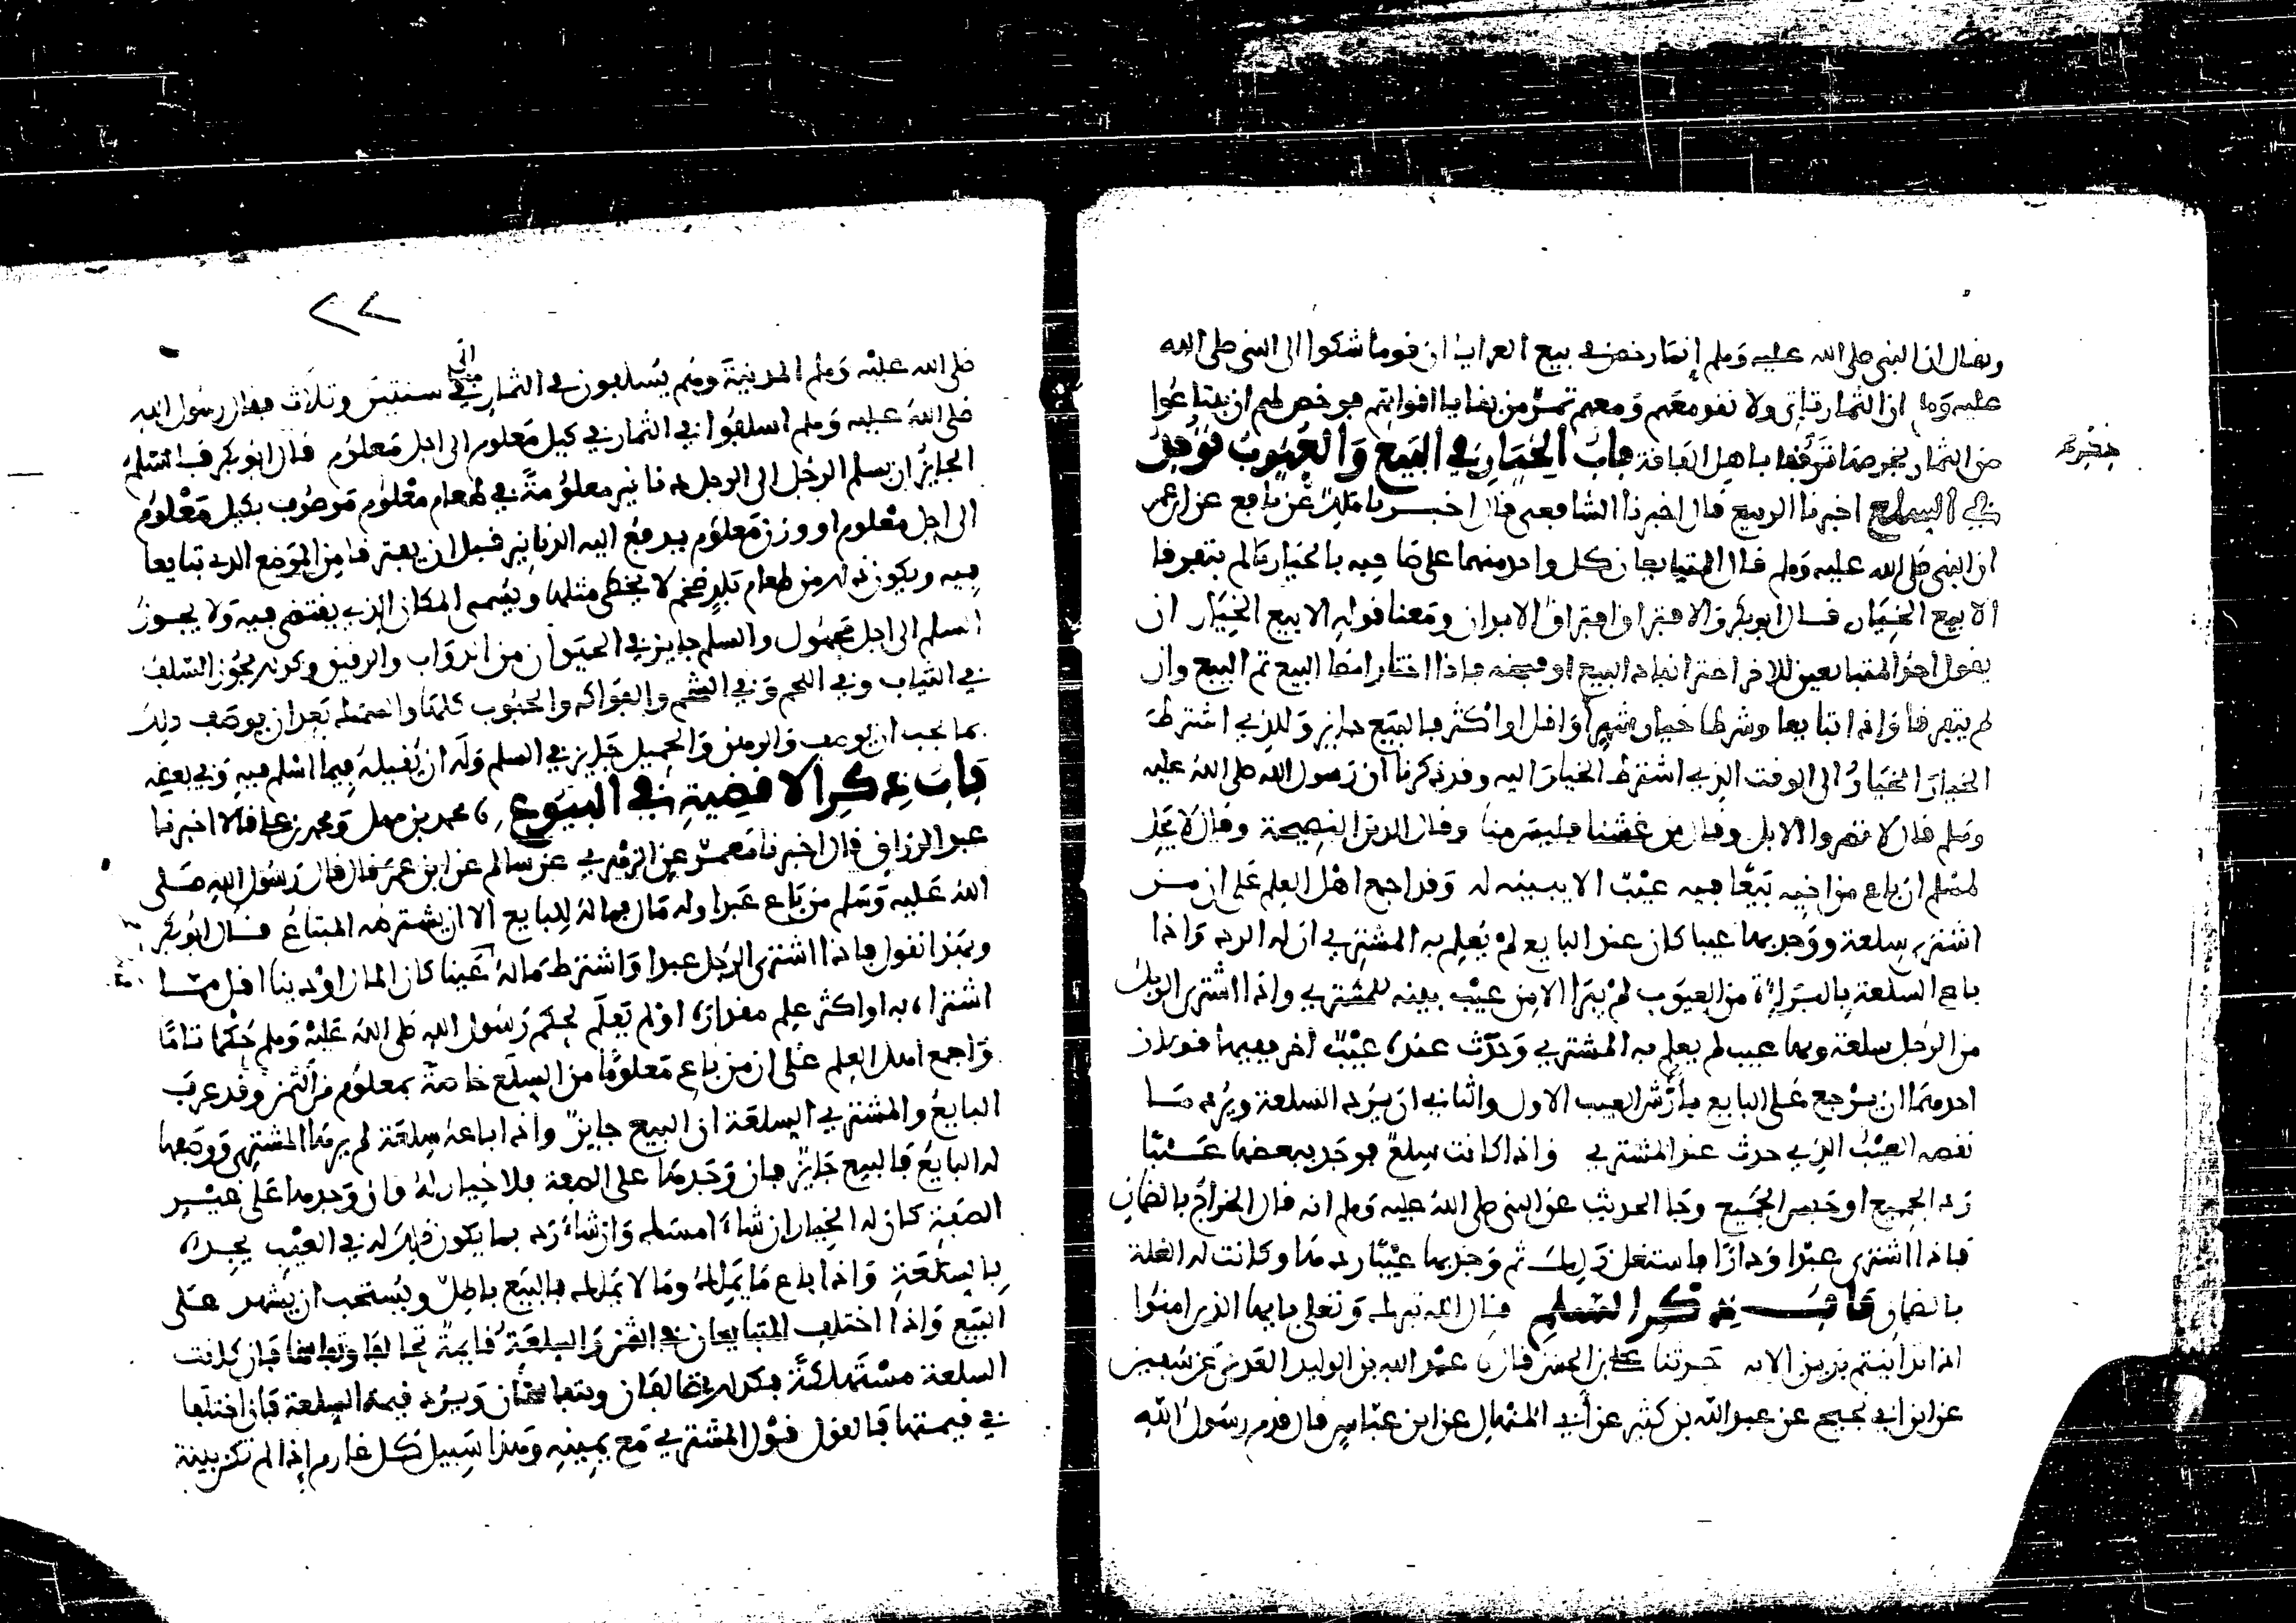 ويقال ان النبي صلى الله عليه وسلم إنما رخص في بيع العرايا ان قوما شكوا الى النبي صلى الله
عليه وسلم ان الثمار تاتي ولا نقد معهم ومعهم تمر من بقايا اقواتهم فرخص لهم ان يبتاعوا
من الثمار بخرصها باهل الفاقة باب الخيار في البيع والعيوب توجد
في السلع اخبرنا الربيع قال اخبرنا الشافعي قال اخبرنا ملك عن نافع عن ابن عمر
ان النبي صلى الله عليه وسلم قال المتبايعان كل واحد منهما على صاحبه بالخيار ما لم يتفرقا
الا بيع الخيار قال ابو بكر والافتراق افتراق الابدان ومعنا قوله الا بيع الخيار ان
يقول احد المتبايعين للاخر اختر انفاذ البيع او فسخه فاذا اختار امضا البيع تم البيع وان
لم يتفرقا واذا تبايعا وشرطا خيار شهر او اقل او اكثر فالبيع جايز وللذي اشترط
الخيار الخيار الى الوقت الذي اشترط الخيار اليه وقد ذكرنا ان رسول الله صلى الله عليه
وسلم قال لا تصروا الابل وقال من غشنا فليس منا وقال الدين النصيحة وقال لا يحل
لمسلم ان باع من اخيه بيعا فيه عيب الا يبينه له وقد اجمع اهل العلم على ان من
اشترى سلعة ووجد بها عيبا كان عند البايع لم يعلم به المشتري ان له الرد واذا
باع السلعة بالبراءة من العيوب لم يبرا الا من عيب بينه للمشتري واذا اشترى الرجل
من الرجل سلعة وبها عيب لم يعلم به المشتري وحدث عنده عيب اخر ففيها قولان
احدهما ان يرجع على البايع بأرش العيب الاول والثاني ان يرد السلعة ويرد ما
نقص العيب الذي حدث عند المشتري واذا كانت سلع فوجد ببعضها عيبا
رد الجميع او حبس الجميع وجا الحديث عن النبي صلى الله عليه وسلم انه قال الخراج بالضمان
فاذا اشترى عبدا ودارا فاستغل ذلك ثم وجد بها عيبا ردها وكانت له الغلة
بالضمان باب ذكر السلم قال الله تبارك وتعلى يا ايها الذين امنوا
اذا تداينتم بدين الايه حدثنا علي بن الحسن قال عبد الله بن الوليد العدني عن سفيان
عن ابن ابي نجيح عن عبد الله بن كثير عن أبي المنهال عن ابن عباس قال قدم رسول الله
٢٢
صلى الله عليه وسلم المدينة وهم يسلفون في الثمار في سنتين وثلاث فقال رسول الله
صلى الله عليه وسلم اسلفوا في الثمار في كيل معلوم الى اجل معلوم قال ابو بكر فالسلم
الجايز ان يسلم الرجل الى الرجل دنانير معلومة في طعام معلوم موصوف بكيل معلوم
الى اجل معلوم او وزن معلوم يدفع اليه الدنانير قبل ان يفترقا من الموضع الذي تبايعا
فيه ويكون ذلك من طعام بلد ضخم لا يخطى مثلها ويسمى المكان الذي يقتضى فيه ولا يجوز
السلم الى اجل مجهول والسلم جايز في الحيوان من الدواب والرقيق وكذلك يجوز السلف
في الثياب وفي اللحم وفي الشحم والفواكه والحبوب كلها بعد ان يوصف ذلك
بما يجب ان يوصف والرهن والحميل جايز في السلم وله ان يقيله فيما اسلم فيه وفي بعضه
باب ذكر الاقضية في البيوع محمد بن سهل ومحمد بن علي قالا اخبرنا
عبد الرزاق قال اخبرنا معمر عن الزهري عن سالم عن ابن عمر قال قال رسول الله صلى
الله عليه وسلم من باع عبدا وله مال فماله للبايع الا ان يشترطه المبتاع قال ابو بكر
وبهذا نقول فاذا اشترى الرجل عبدا واشترط ماله عينا كان المال او دينا اقل مما
اشتراه به او اكثر علم مقداره او لم يعلم لحكم رسول الله صلى الله عليه وسلم حكما تاما
واجمع اهل العلم على ان من باع معلوما من السلع حاضرة بمعلوم من الثمن وقد عرف
البايع والمشتري السلعة ان البيع جايز واذا باعه سلعة لم يرها المشتري ووصفها
له البايع فالبيع جايز فان وجدها على الصفة فلا خيار له وان وجدها على غير
الصفة كان له الخيار ان شاء امسك وان شاء رد بما يكون ذلك له في العيب يجده
بالسلعة واذا باع ما يملك وما لا يملك فالبيع باطل ويستحب ان يشهد على
البيع واذا اختلف المتبايعان في الثمن والسلعة قايمة تحالفا فان كانت
السلعة مستهلكة فكذلك يتحالفان ويرد قيمة السلعة فان اختلفا
في قيمتها فالقول قول المشتري مع يمينه وهذا سبيل كل غارم إذا لم تكن بينة